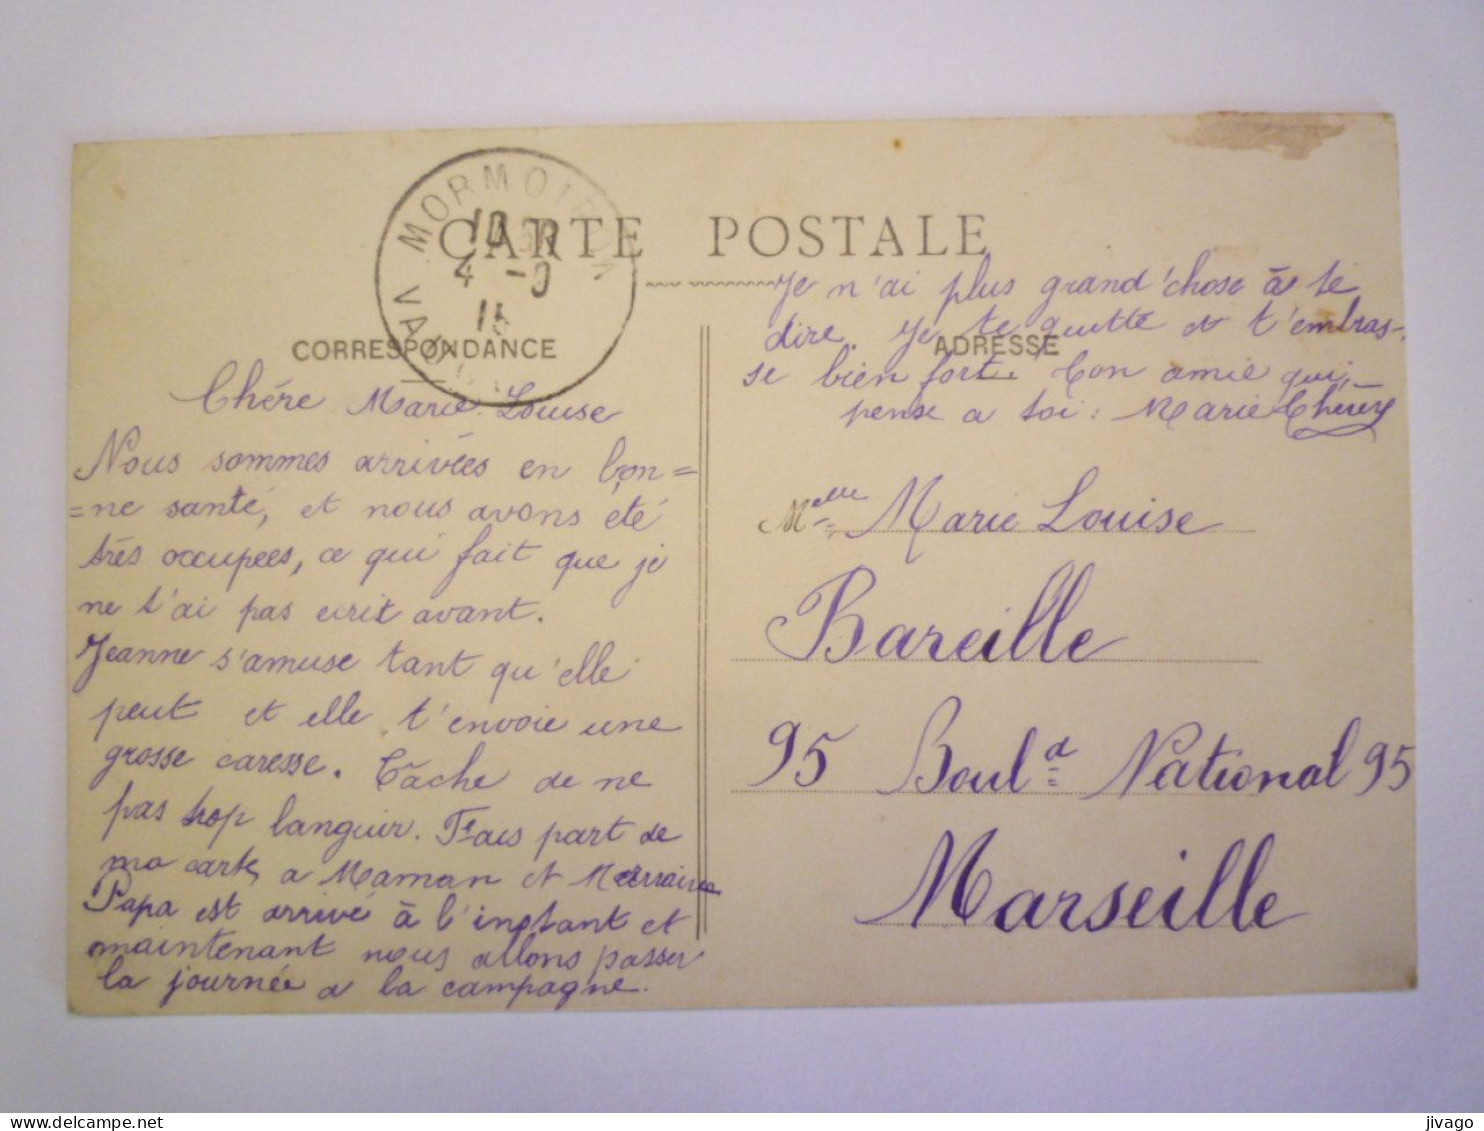 CARTE POSTALE
MORMOIRON
10
4 - 9
15
CORRESPONDANCE
ADRESSE
Chère Marie Louise
Nous sommes arrivées en bon=
=ne santé, et nous avons été
très occupées, ce qui fait que je
ne t'ai pas ecrit avant.
Jeanne s'amuse tant qu'elle
peut et elle t'envoie une
grosse caresse. Tâche de ne
pas trop languir. Fais part de
ma carte a Maman et Marraine
Papa est arrivé à l'instant et
maintenant nous allons passer
la journée a la campagne.
Je n'ai plus grand'chose à te
dire. Je te quitte et t'embras-
se bien fort. Ton amie qui
pense a toi: Marie
Melle Marie Louise
Bareille
95 Bould National 95
Marseille
jivago